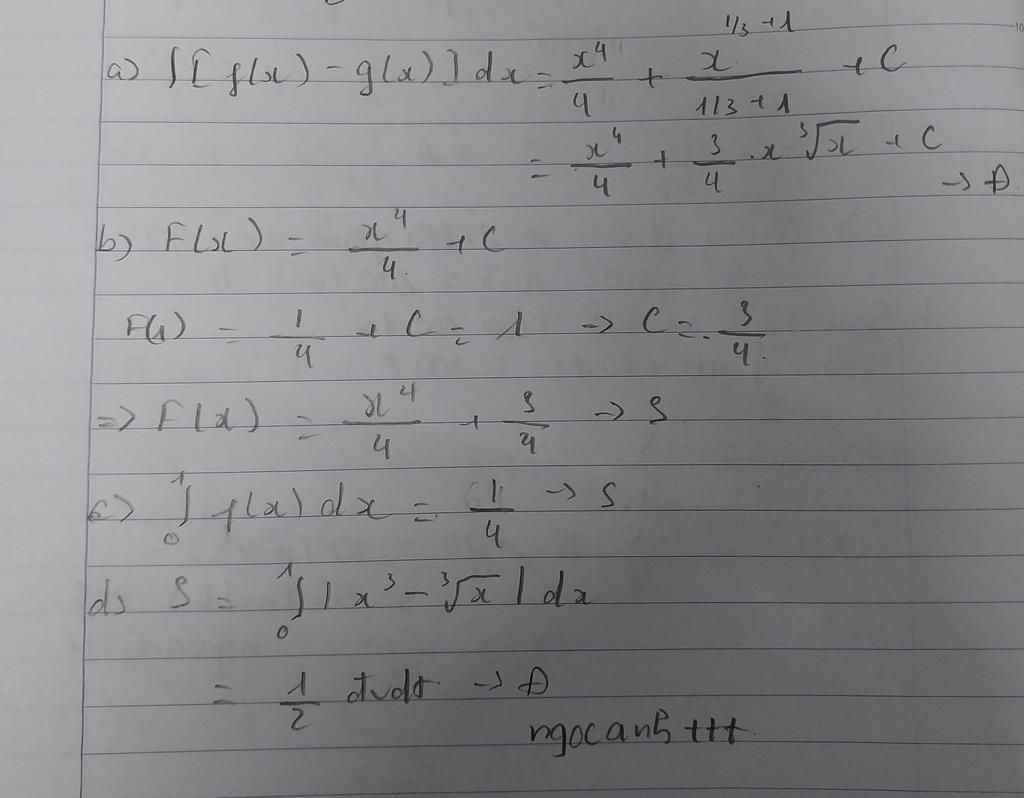 a) ∫[f(x) - g(x)]dx = x⁴/4 + x^(1/3+1)/(1/3+1) + C
= x⁴/4 + 3/4 . x ³√x + C
→ Đ
b) F(x) = x⁴/4 + C
F(1) = 1/4 + C = 1 → C = 3/4
=> F(x) = x⁴/4 + 3/4 → S
c) ∫₀¹ f(x) dx = 1/4 → S
d) S = ∫₀¹ |x³ - ³√x| dx
= 1/2 đvdt → Đ
ngocanh ttt